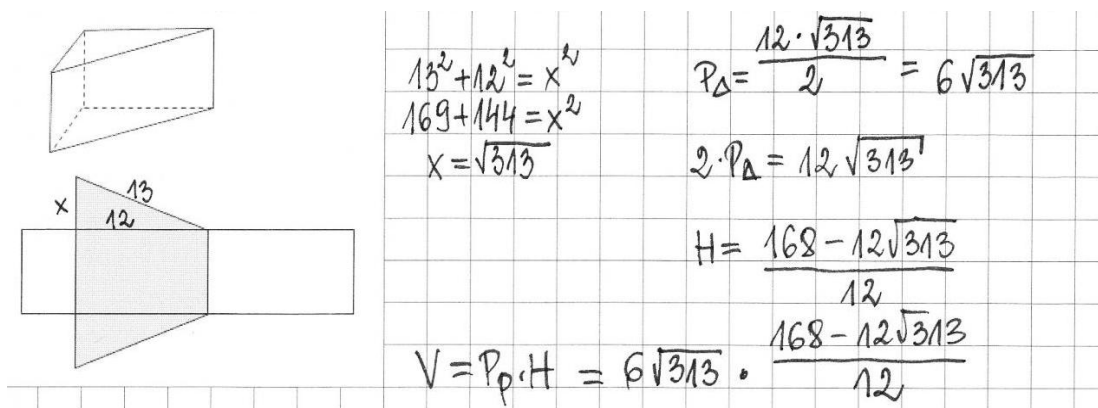 13² + 12² = x²
169 + 144 = x²
x = √313
x
13
12
P_Δ = 12·√313 / 2 = 6√313
2·P_Δ = 12√313
H = 168 - 12√313 / 12
V = P_p·H = 6√313 · 168 - 12√313 / 12